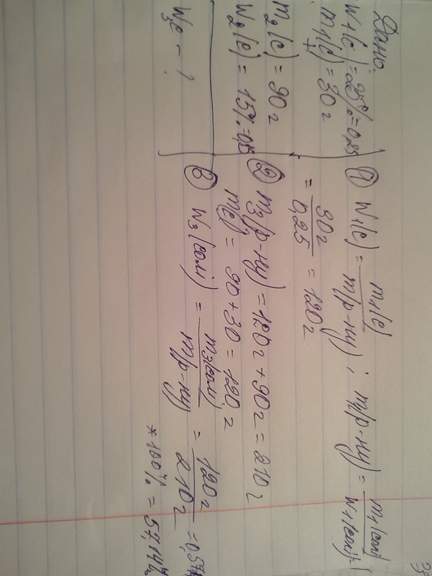 Дано:
W1(с)=25%=0,25
m1(с)=30г
m2(с)=90г
W2(с)=15%=0,15
W3с - ?
① W1(с) = m1(с) / m(р-ну) ; m(р-ну) = m1(соли) / W1(соли) =
= 30г / 0,25 = 120г
② m3(р-ну)=120г+90г=210г
m(с) = 90+30=120г
③ W3(соли) = m3(соли) / m(р-ну) = 120г / 210г = 0,57
*100% = 57,14%